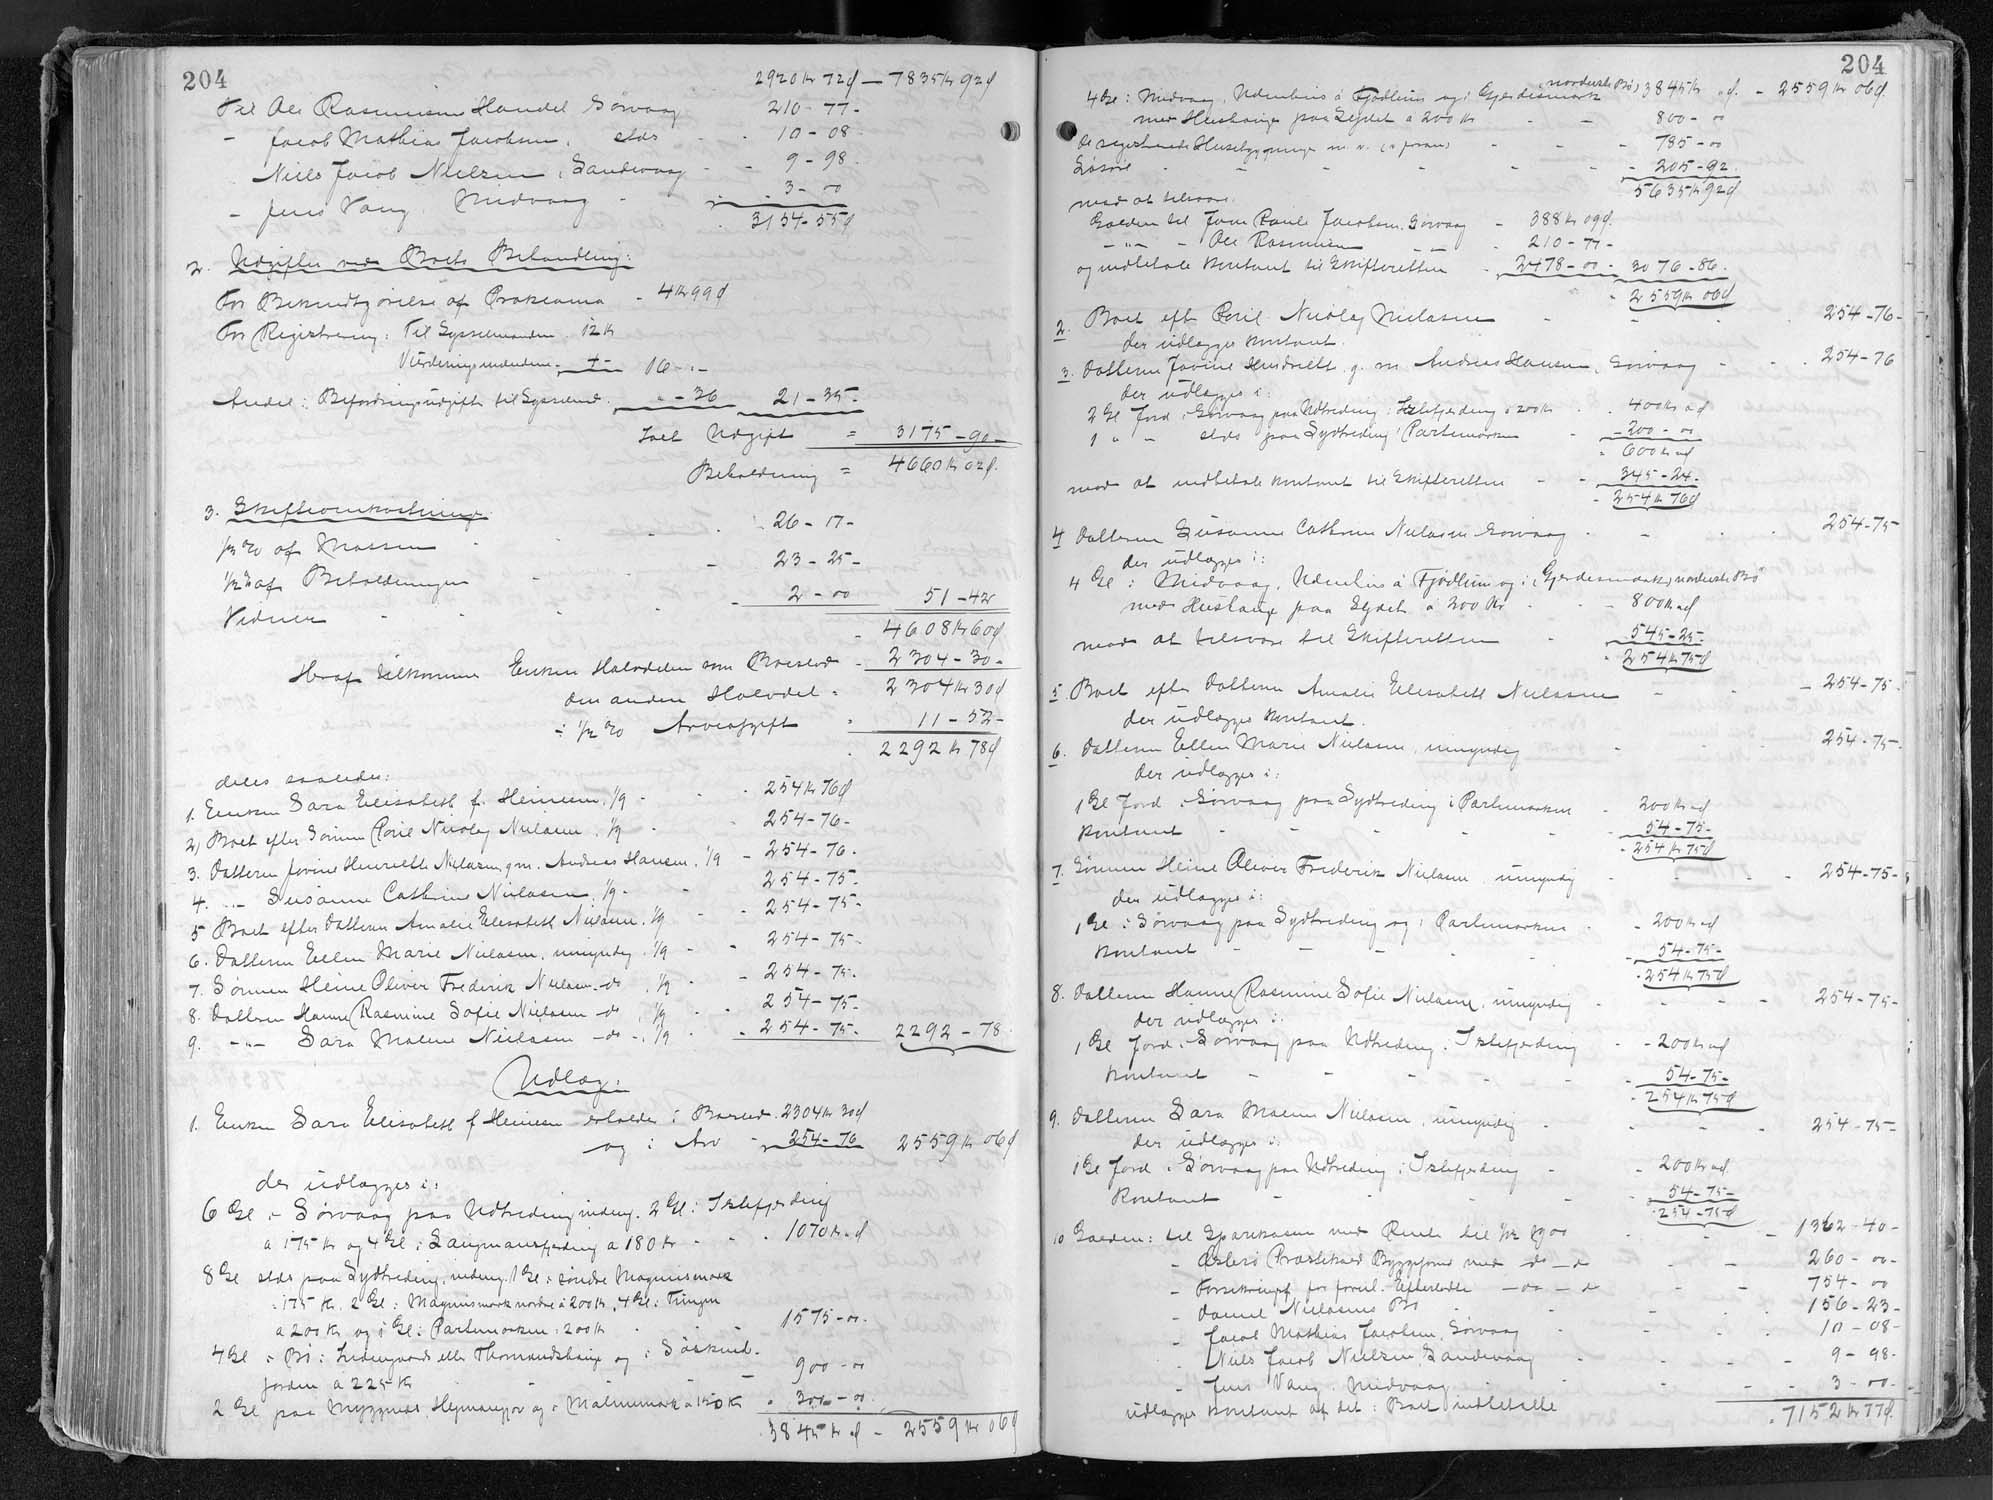 204
2920 Kr 72 Ø — 7835 Kr 92 Ø
Til Ole Rasmussens Handel Sørvaag 210-77-
- Jacob Mathias Jacobsen, stds - - 10-08-
Niels Jacob Nielsen, Sandevaag - - 9-98-
- Jens Vang, Midvaag - 3-00
3154-55 Ø
2. Udgifter ved Boets Behandling:
For Bekendtgørelse af Proklama - 4 Kr 99 Ø
For Registrering: Til Sysselmanden 12 Kr
Vurderingsmændene 4- 16-"-
Andel i Befordringsudgift til Sysselmd. "-36 21-35-
Ialt Udgift = 3175-90-
Beholdning = 4660 Kr 02 Ø.
3. Skifteomkostninger
1/3 % af Massen - - - 26-17-
1/2 % af Beholdningen - - - 23-25-
Vidner - - - 2-00 51-42
- 4608 Kr 60 Ø
Heraf tilkommer Enken Halvdelen som Boeslod - 2304-30-
den anden Halvdel - 2304 Kr 30 Ø
÷ 1/2 % Arveafgift - 11-52-
2292 Kr 78 Ø
deles saaledes:
1. Enken Sara Elisabeth f. Heinesen, 1/9 - - 254 Kr 76 Ø
2) Boet efter Sønnen Poul Nicolaj Nielsen, 1/9 - - 254-76-
3. Datteren Jovine Henriette Nielsen, g.m. Andreas Hansen, 1/9 - 254-76-
4. -"- Susanne Cathrine Nielsen, 1/9 - - 254-75-
5 Boet efter Datteren Amalie Elisabeth Nielsen, 1/9 - - 254-75-
6. Datteren Ellen Marie Nielsen, umyndig, 1/9 - - 254-75-
7. Sønnen Heine Oliver Frederik Nielsen - do, 1/9 - - 254-75-
8. Datteren Hanne Rasmine Sofie Nielsen - do, 1/9 - - 254-75-
9. -"- Sara Malene Nielsen - do -, 1/9 - - 254-75- 2292-78
Udlæg:
1. Enken Sara Elisabeth f Heinesen erholder i Boeslod 2304 Kr 30 Ø
og i Arv - 254-76 2559 Kr 06 Ø
der udlægges i:
6 Gl i Sørvaag paa Udtreding, 2 Gl i
a 175 Kr og 4 Gl i a 180 Kr - - - 1070 Kr " Ø
8 Gl stds paa Sydtreding, 1 Gl i søndre Magnusmark
175 Kr, 2 Gl i Magnusmark nordre a 200 Kr, 4 Gl i
a 200 Kr og 1 Gl i Partemarken a 200 Kr 1575-00-
4 Gl i Bø i eller og i
jorden a 225 Kr - 900-00
2 Gl paa og i a 150 Kr - 300-00
3845 Kr " Ø - 2559 Kr 06 Ø
204
4 Gl i Midvaag, a og i Gjerdesmark (nordeste Bø) 3845 Kr " Ø. - 2559 Kr 06 Ø.
med Hushauge paa a 200 Kr - - 800-00
De registrerede Husebygninger m.v. (s. foran) - - 785-00
Løsøre - - - - 205-92
5635 Kr 92 Ø
mod at tilsvare
Gælden til Jacobsen, Sørvaag - 388 Kr 09 Ø.
-"- - Ole Rasmussen - 210-77-
og indbetale kontant til Skifteretten - 2478-00- 3076-86-
- 2559 Kr 06 Ø
2. Boet eft. Poul Nicolaj Nielsen - - - 254-76-
der udlægges kontant.
3. Datteren Jovine Henriette, g. m. Andreas Hansen, Sørvaag - - 254-76
der udlægges i:
2 Gl Jord i Sørvaag paa Udtreding i a 200 Kr - - 400 Kr " Ø
1 " - stds paa Sydtreding i Partemarken - - 200-00
- 600 Kr " Ø
mod at indbetale kontant til Skifteretten - - 345-24-
- 254 Kr 76 Ø
4 Datteren Susanne Cathrine Nielsen, Sørvaag - - - 254-75-
der udlægges i:
4 Gl i Midvaag, a og i Gjerdesmark, nordeste Bø
med Hushauge paa a 200 Kr - - 800 Kr " Ø
mod at tilsvare til Skifteretten - 545-25-
- 254 Kr 75 Ø
5. Boet efter Datteren Amalie Elisabeth Nielsen - - - 254-75-
der udlægges kontant.
6. Datteren Ellen Marie Nielsen, umyndig - - 254-75-
der udlægges i:
1 Gl Jord i Sørvaag paa Sydtreding i Partemarken - 200 Kr " Ø
Kontant - - - - 54-75-
- 254 Kr 75 Ø
7. Sønnen Heine Oliver Frederik Nielsen, umyndig - - - 254-75-
der udlægges i:
1 Gl i Sørvaag paa Sydtreding og i Partemarken - - 200 Kr " Ø
Kontant - - - - 54-75-
- 254 Kr 75 Ø
8. Datteren Hanne Rasmine Sofie Nielsen, umyndig - - - 254-75-
der udlægges i:
1 Gl Jord i Sørvaag paa Udtreding i - - 200 Kr " Ø
Kontant - - - - 54-75-
- 254 Kr 75 Ø
9. Datteren Sara Malene Nielsen, umyndig - - - 254-75-
der udlægges i:
1 Gl Jord i Sørvaag paa Udtreding i - - 200 Kr " Ø
Kontant - - - - 54-75-
254-75 Ø
10 Gælden: til Sparekassen med Rente til - - - 1362-40-
- Østerø Præstekald Byggefond med - do - do - - 260-00-
- - do - do - - 754-00
- Daniel Nielsens Bo - - - 156-23-
- Jacob Mathias Jacobsen, Sørvaag - - - 10-08-
- Niels Jacob Nielsen, Sandevaag - - - 9-98-
- Jens Vang, Midvaag - - - 3-00-
udlægges kontant af det i Boet indbetalte - 7152 Kr 77 Ø.